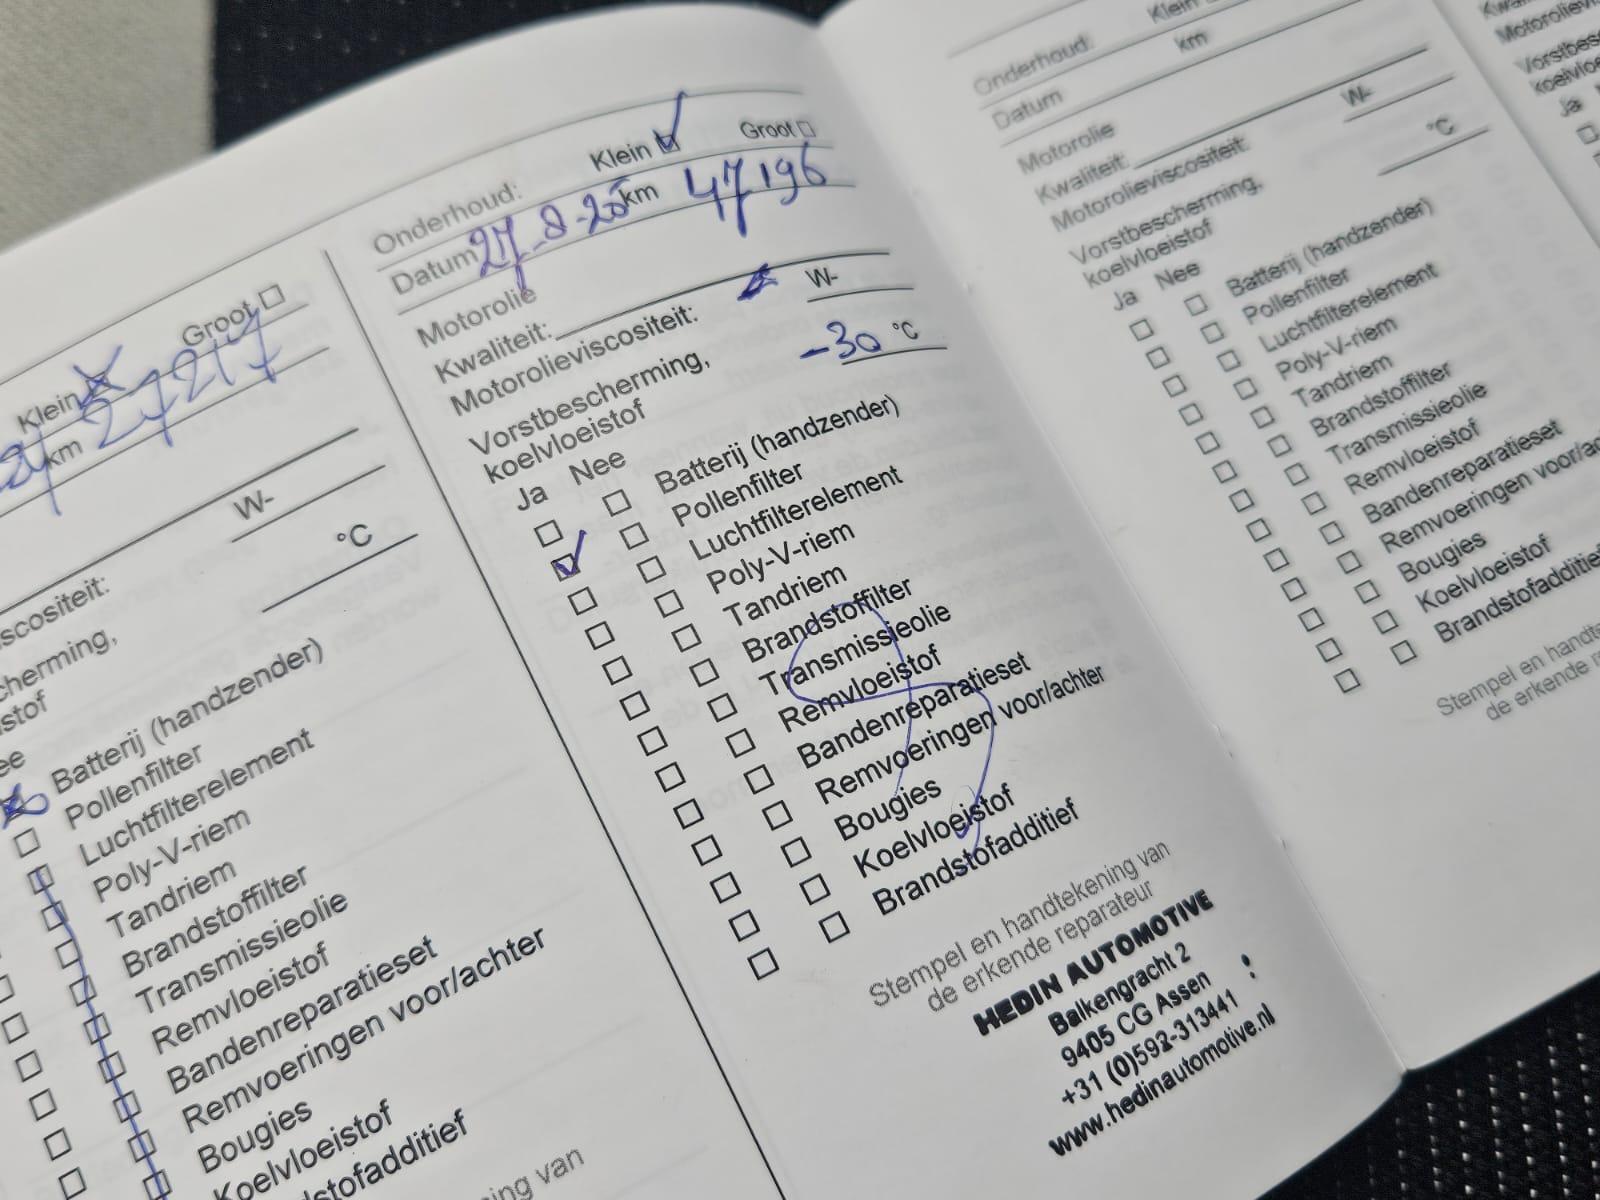 Klein Groot
km 27217
W-
°C
scositeit:
cherming,
stof
ee
Batterij (handzender)
Pollenfilter
Luchtfilterelement
Poly-V-riem
Tandriem
Brandstoffilter
Transmissieolie
Remvloeistof
Bandenreparatieset
Remvoeringen voor/achter
Bougies
Koelvloeistof
stofadditief
ing van
Onderhoud: Klein Groot
Datum 27-8-25 km 47196
Motorolie
Kwaliteit:
Motorolieviscositeit: W-
Vorstbescherming, -30 °C
koelvloeistof
Ja Nee
Batterij (handzender)
Pollenfilter
Luchtfilterelement
Poly-V-riem
Tandriem
Brandstoffilter
Transmissieolie
Remvloeistof
Bandenreparatieset
Remvoeringen voor/achter
Bougies
Koelvloeistof
Brandstofadditief
Stempel en handtekening van
de erkende reparateur
HEDIN AUTOMOTIVE
Balkengracht 2
9405 CG Assen
+31 (0)592-313441
www.hedinautomotive.nl
Onderhoud: Klein
Datum km
Motorolie
Kwaliteit: W-
Motorolieviscositeit:
Vorstbescherming, °C
koelvloeistof
Ja Nee
Batterij (handzender)
Pollenfilter
Luchtfilterelement
Poly-V-riem
Tandriem
Brandstoffilter
Transmissieolie
Remvloeistof
Bandenreparatieset
Remvoeringen voor/ac
Bougies
Koelvloeistof
Brandstofadditie
Stempel en handte
de erkende r
Motorolievi
Vorstbesc
koelvloe
Ja